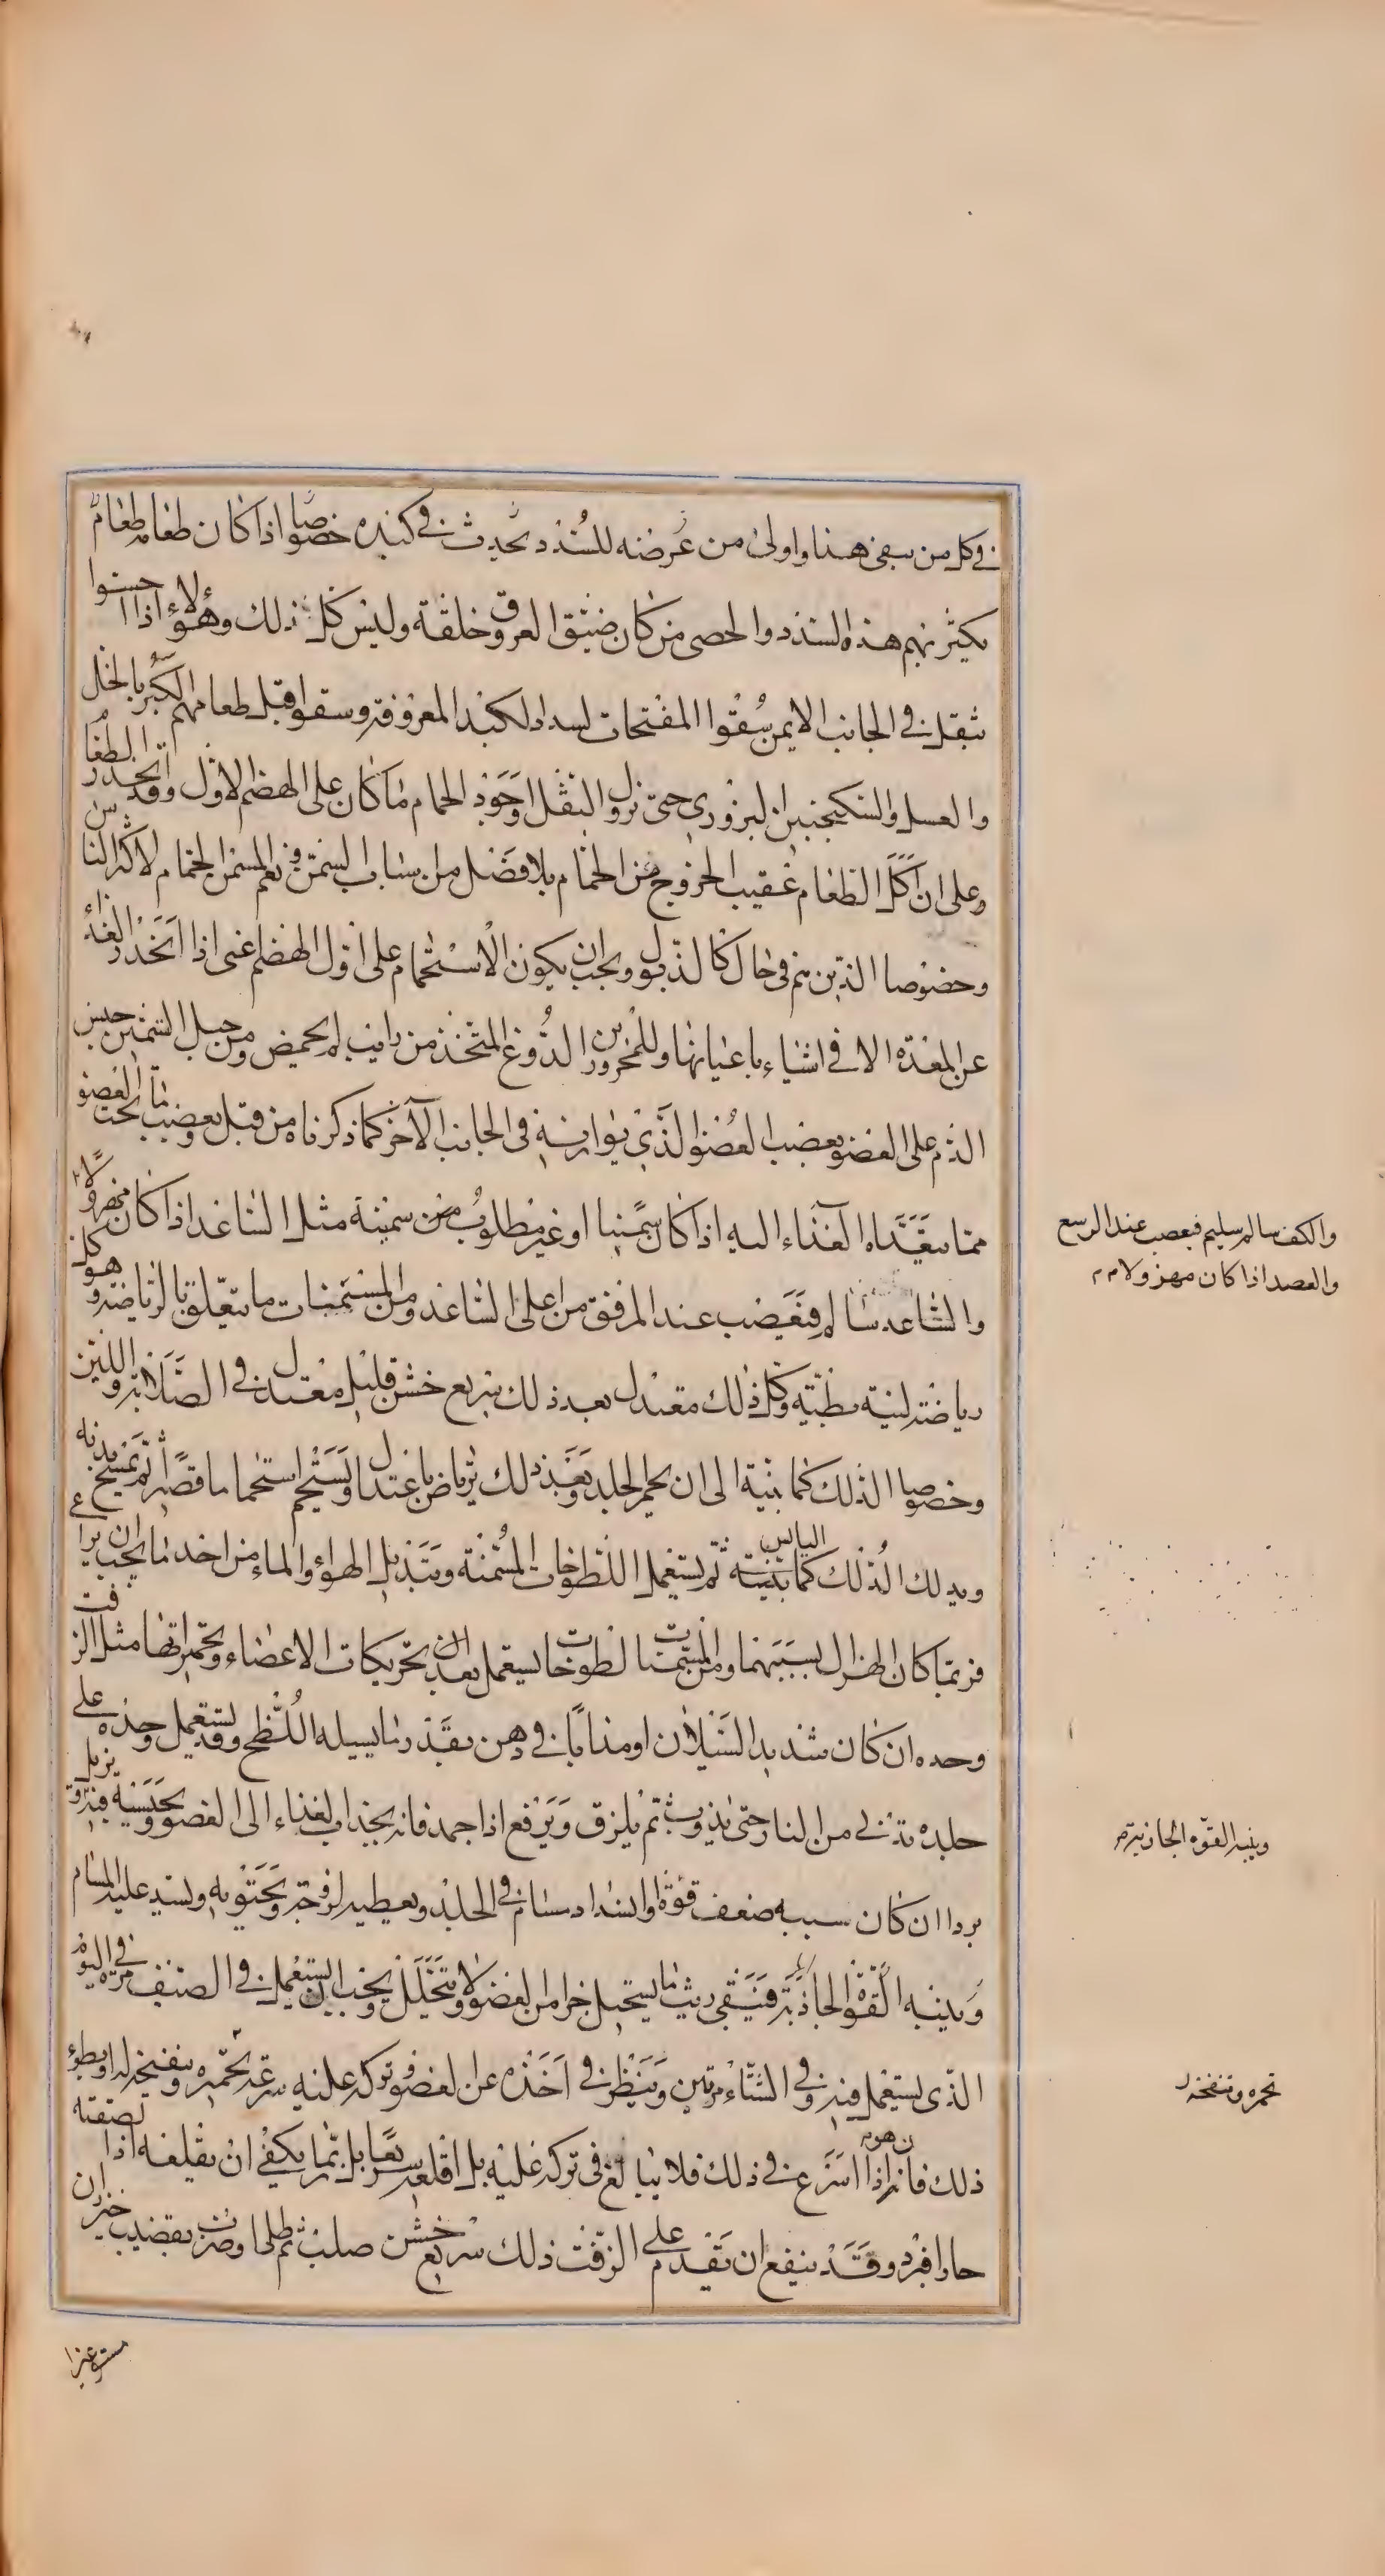 في كل من سقي هذا واولى من عرضه للسدد تحدث في كبده خصوصا اذا كان طعامه طعام
يكثر بهم هذه السدد والحصى من كان ضيق العروق خلقة وليس كل ذلك وهؤلاء اذا احسوا
بثقل في الجانب الايمن سقوا المفتحات لسداد الكبد المعروفة وسقوا قبل طعامهم الكبر بالخل
والعسل والسكنجبين البزوري حتى نزول الثقل اوجود الحمام ما كان على الهضم الاول وقد انحدر الطعام
وعلى ان اكل الطعام عقيب الخروج من الحمام بلا فضل من اسباب السمن ونعم المسمن الحمام لاكثر الناس
وخصوصا الذين هم في حال كالذبول ويجب ان يكون الاستحمام على اول الهضم اعنى اذا انحدر الغذاء
عن المعدة الا في اشياء باعيانها وللمحرورين الدوغ المتخذ من رايب لم يحمض ومن حيل التسمين حبس
الدم على العضو بعصب العضو الذي يوازيه في الجانب الآخر كما ذكرناه من قبل وبعصب ما تحت العضو
مما يتعداه الغذاء اليه اذا كان سمينا او غير مطلوب من سمينه مثل الساعد اذا كان مهزولا
والساعد سالم فتعصب عند المرفق من اعلى الساعد ومن المسمنات ما يتعلق بالرياضة وهو كل
رياضة لينة بطيئة وكل ذلك معتدل بعد ذلك سريع خشن قليل معتدل في الصلابة واللين
وخصوصا الدلك كما بنية الى ان يحمر الجلد وبعد ذلك يرتاض باعتدال ويستحم استحماما قصيرا ثم تمسح بدنه
ويدلك الدلك اليابس كما بنيته ثم يستعمل اللطوخات المسمنة وتبديل الهواء والماء من احد ما يجب ان يراعى
فربما كان الهزال بسببهما ومن المسمنات لطوخات يستعمل بعد الدلك تحريكات الاعضاء وتحميراتها مثل الزفت
وحده ان كان شديد السيلان او مذابا في دهن بقدر ما يسيله اللطخ وقد يستعمل وحده على
جلدة تدنى من النار حتى يذوب ثم يلزق ويرفع اذا جمد فانه يجذب الغذاء الى العضو ويحبسه فيه ويزيل
بردا ان كان سببه ضعف قوة او انسداد مسام في الجلد ويعطيه لزوجة ويحتويه ويسد عليه المسام
وينبه القوة الجاذبة فتبقى ريث ما يستحيل جزا من العضو ولا يتحلل ويجب ان يستعمل في الصيف مرة في اليوم
الذى يستعمل فيه وفي الشتاء مرتين وينظر في اخذه عن العضو وتركه عليه سرعة تحمره وتنفخه له او بطوء
ذلك فانه اذا اسرع في ذلك فلا يبالغ في تركه عليه بل اقلعه سريعا بل ربما يكفي ان يقلعه اذا لصقته
حارا فبرد وقد ينفع ان تقدم على الزفت ذلك سريع خشن صلب ثم طلى او ضرب بقضيب خيزران
والكف سالم سليم فيعصب عند الرسغ
والعضد اذا كان مهزولا مم
وينبه القوة الجاذبة
تحمره وتنفخه